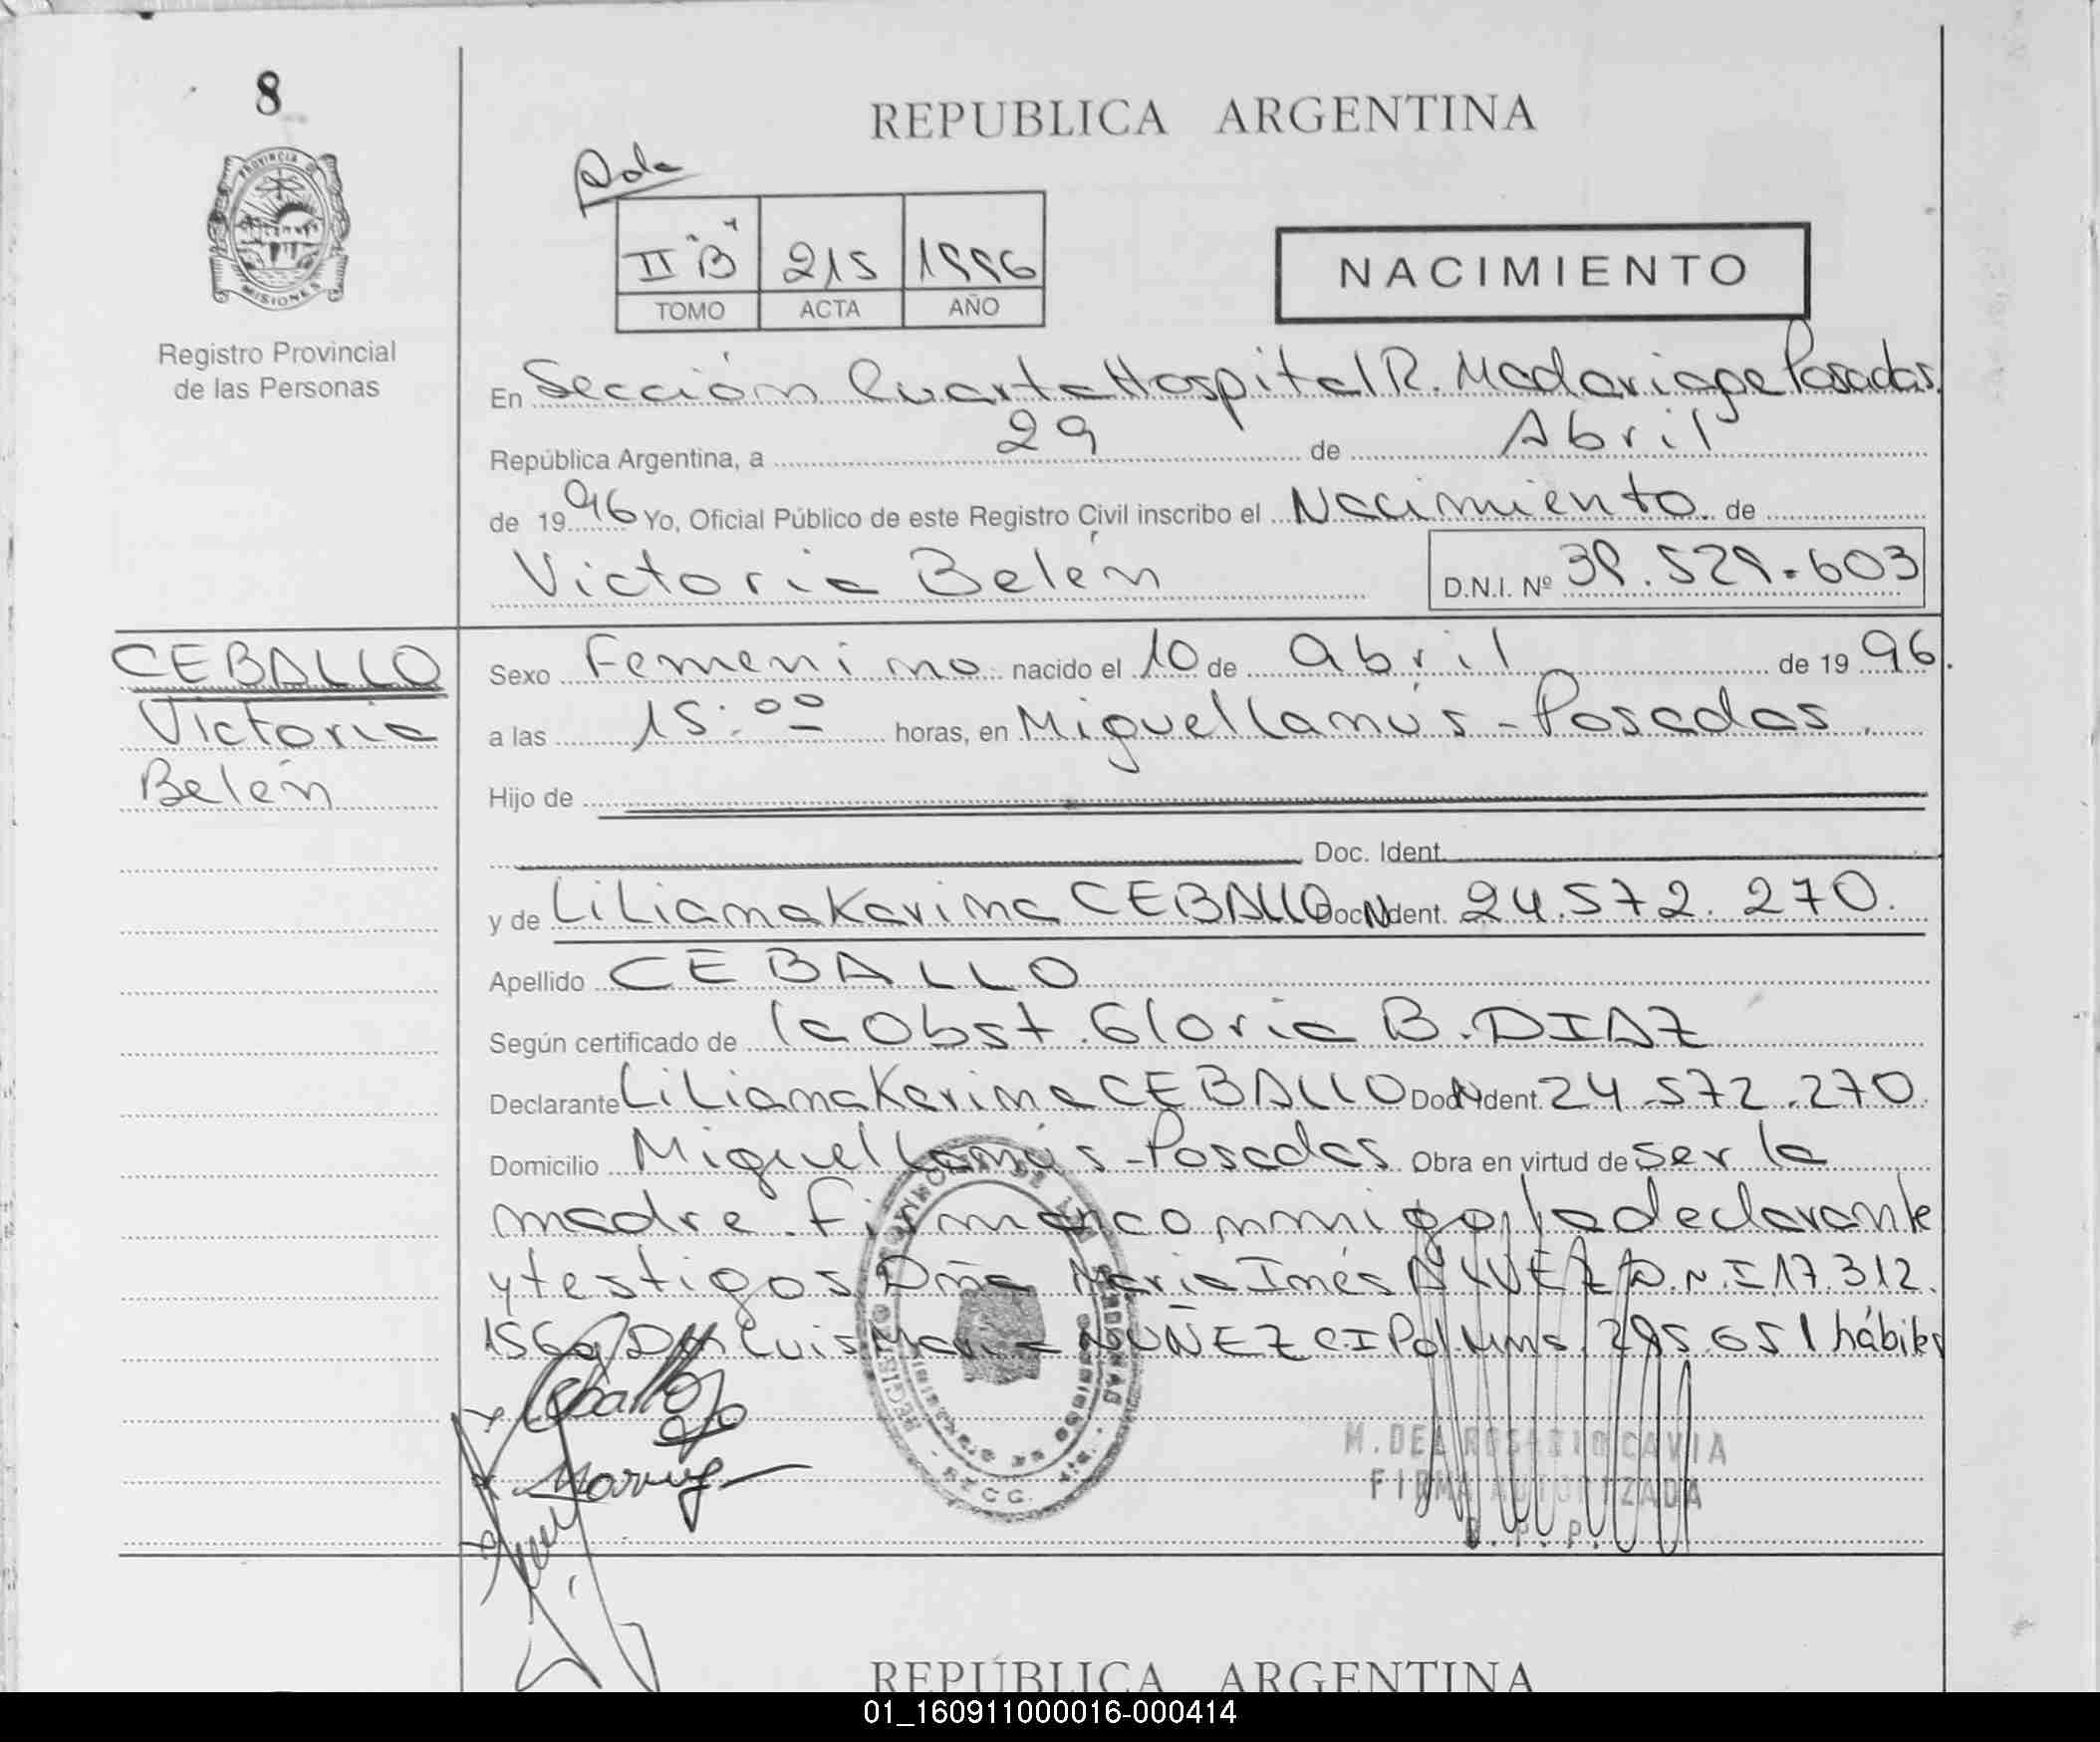 8
REPUBLICA ARGENTINA
PROVINCIA D MISIONES
Registro Provincial
de las Personas
II "B" 215 1996
TOMO ACTA AÑO
NACIMIENTO
En Sección Cuarta Hospital R. Madariaga Posadas.
República Argentina, a 29 de Abril
de 1996 Yo, Oficial Público de este Registro Civil inscribo el Nacimiento de
Victoria Belén D.N.I. Nº 39.529.603
CEBALLO
Victoria
Belén
Sexo Femenino nacido el 10 de abril de 1996.
a las 15:00 horas, en Miguel Lanús - Posadas.
Hijo de
Doc. Ident.
y de Liliana Karina CEBALLO Doc. Ident. N 24.572.270.
Apellido CEBALLO
Según certificado de la Obst. Gloria B. DIAZ
Declarante Liliana Karina CEBALLO Doc. Ident. N 24.572.270.
Domicilio Miguel Lanús - Posadas. Obra en virtud de ser la
madre. Firman conmigo, la declarante
y testigos Dña María Inés D.N.I 17.312.
156 y Dn Luis María NUÑEZ C I Pol Mns. 295.651 hábiles
Ceballo
REGISTRO PROVINCIAL DE LAS PERSONAS
M. DEL ROSARIO CAVIA
FIRMA AUTORIZADA
R. P. P.
REPUBLICA ARGENTINA
01_160911000016-000414